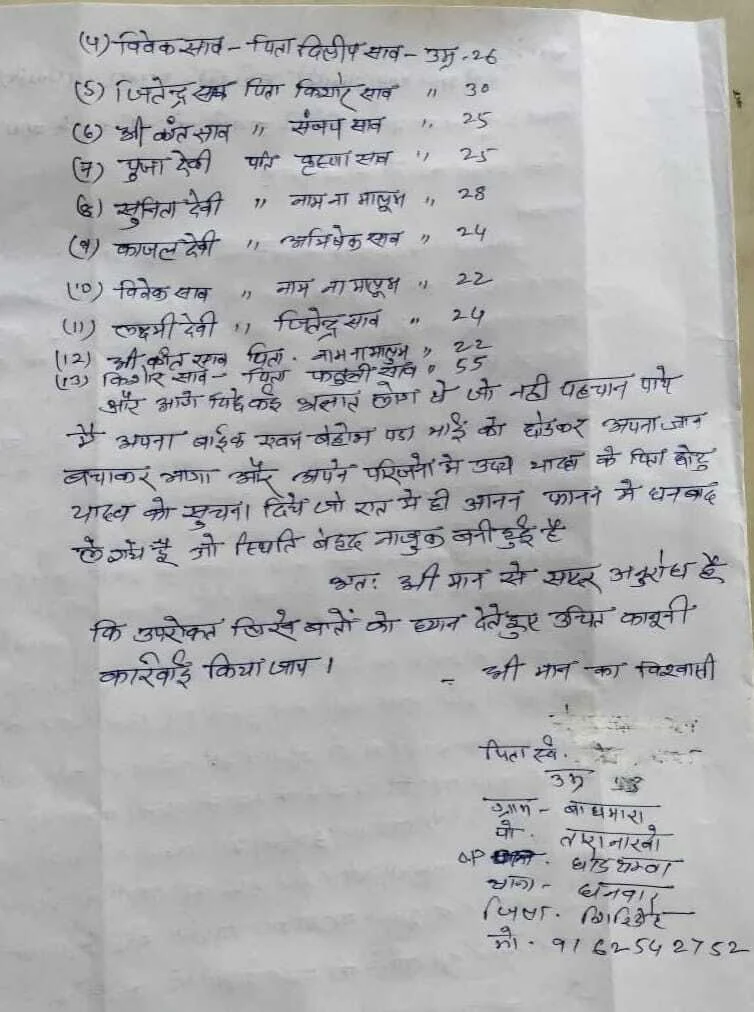 (4) विवेक साव - पिता दिलीप साव - उम्र - 26
(5) जितेन्द्र साव पिता किशोर साव " 30
(6) श्री कांत साव " संजय साव " 25
(7) पुजा देवी पति कृष्णा साव " 25
(8) सुनिता देवी " नाम ना मालूम " 28
(9) काजल देवी " अभिषेक साव " 24
(10) विवेक साव " नाम ना मालूम " 22
(11) लक्ष्मी देवी " जितेन्द्र साव " 24
(12) श्री कांत साव पिता - नाम ना मालुम " 22
(13) किशोर साव - पिता साव " 55
और आगे पिछे कई अज्ञात लोग थे जो नही पहचान पाये
मै अपना बाईक एवम बेहोश पडा भाई को छोडकर अपना जान
बचाकर भागा और अपने परिजनो मे उदय यादव के पिता छोटु
यादव को सुचना दिये जो रात मे ही आनन फानन मे धनबाद
ले गये है जो स्थिति बेहद नाजुक बनी हुई है
अतः श्री मान से सादर अनुरोध है
कि उपरोक्त लिखे बातों को ध्यान देते हुए उचित कानूनी
कार्रवाई किया जाय।
- श्री मान का विश्वासी
पिता स्व.
उम्र
ग्राम - बाघमारा
पो. तारानारवो
OP घोडथम्बा
थाना - धनवार
जिला - गिरिडीह
मो. 9162542752